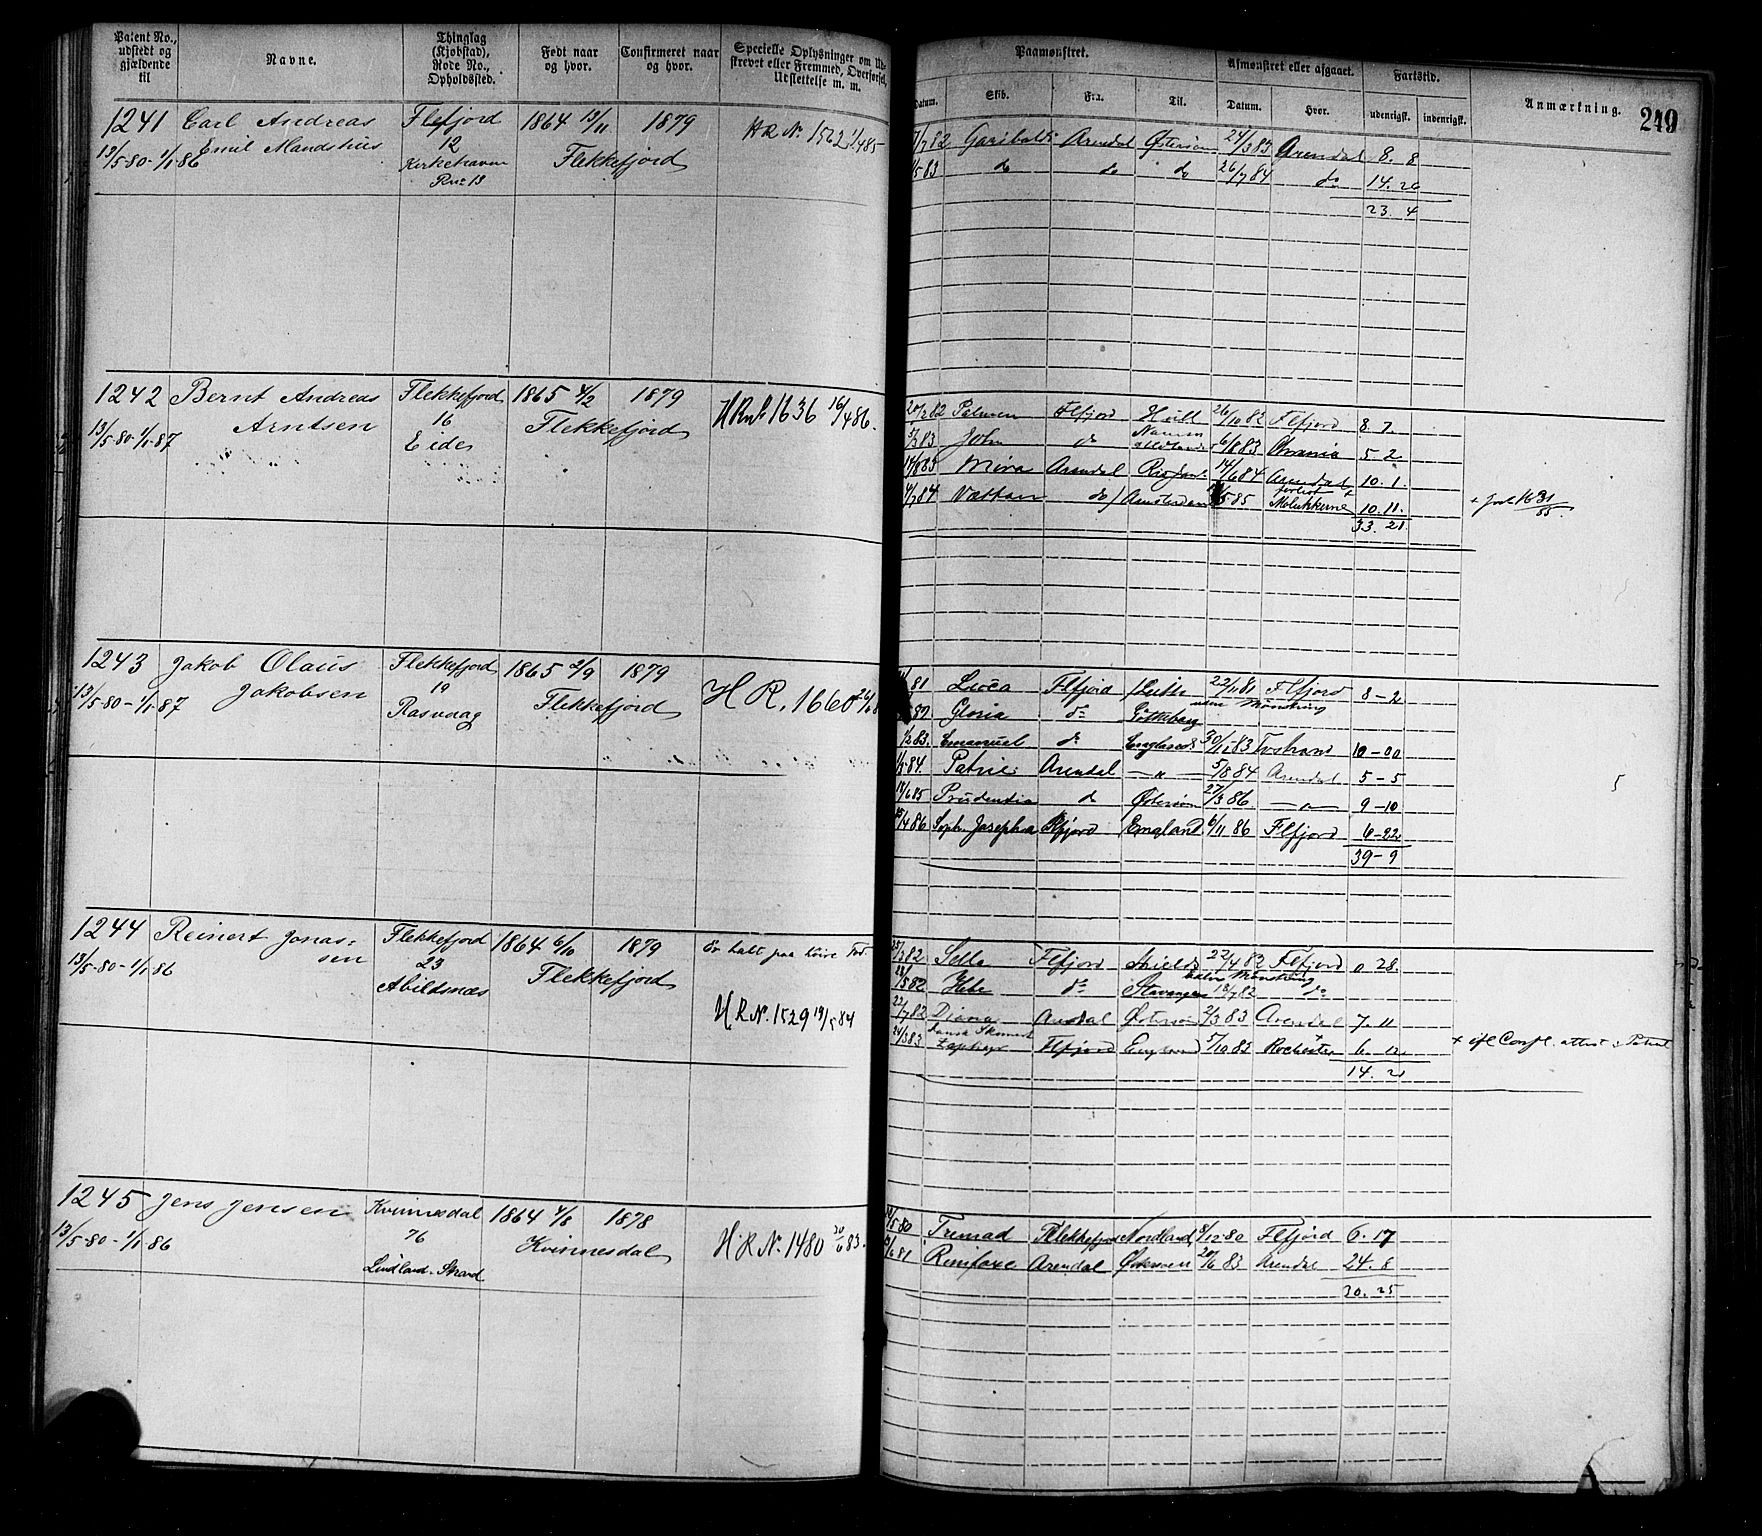 Patent No., udstedt og gjældende til
Navne.
Thinglag (Kjøbstad), Rode No., Opholdssted.
Født naar og hvor.
Confirmeret naar og hvor.
Specielle Oplysninger om Udskrevet eller Fremmed, Overførsel, Udslettelse m. m.
Paamønstret.
Datum.
Skib.
Fra.
Til.
Afmønstret eller afgaaet.
Datum.
Hvor.
Fartstid.
udenrigsk.
indenrigsk.
Anmærkning.
249
1241 Carl Andreas Flefjord 1864 13/11 1879 H R No 1562
Emil Mandshus 12 Flekkefjord
13/5-80-1/1-86 Kirkehavn
Rno 13
82 Garibaldi Arendal Østersøn 24/3 83 Arendal 8. 8
/5 83 do do do 26/7 84 do 14. 26
23. 4
1242 Bernt Andreas Flekkefjord 1865 4/2 1879 H Rno 1636 16/4 86.
13/5-80-1/1-87 Arntsen 16 Flekkefjord
Eide
20/2 82 Palmen Flfjord Hull 26/10 82 Flfjord 8. 7.
5/3 83 John do 6/8 83 5. 2
83 Mira Arendal 14/6 84 Arendal 10. 1.
/7 84 do Amsterdam 5 85 forlist + Molukkerne 10. 11.
33. 21
+ Jnl 1631/85.
1243 Jakob Olaus Flekkefjord 1865 2/9 1879 H R. 1660
13/5-80-1/1-87 Jakobsen 19 Flekkefjord
Rasvaag
81 Flfjord Leith 22/11 81 Flfjord 8-2
uden Mønstring
Gloria do Gøtheborg
/2 83. Emanuel do England 30/11 83 10-00
84. Patrie Arendal -"- 5/8 84 Arendal 5-5
/6 85 Prudentia do Østersøn 27/3 86 -"- 9-10
/4 86 Soph. Josepha Flfjord England 6/11 86 Flfjord 6-22
39-9
5
1244 Reinert Jonas- Flekkefjord 1864 6/10 1879 Er halt paa høire Fod.
sen 23 Flekkefjord
13/5-80-1/1-86 Abildsnæs H R No. 1529 19/5 84
82 Flfjord Shields 22/4 82 Flfjord 0. 28.
uden Mønstring
/5 82 Hebe do Stavanger 18/7 82 do
22/7 82 Diana Arendal Østersøn 2/3 83 Arendal 7. 11
24/3 83 Flfjord England 5/10 83 Rochester + 6.
14. 21
+ ifl Consl. attest i Patent
1245 Jens Jensen Kvinnesdal 1864 4/8 1878 H. R. No. 1480 20/6 83.
13/5-80-1/1-86 76 Kvinnesdal
Lindland. Strand
/5-80 Flekkefjord Nordland 8/12-80 Flfjord 6. 17
81 Rimfaxe Arendal Østersøen 20/6 83 Arendal 24. 8
30. 25